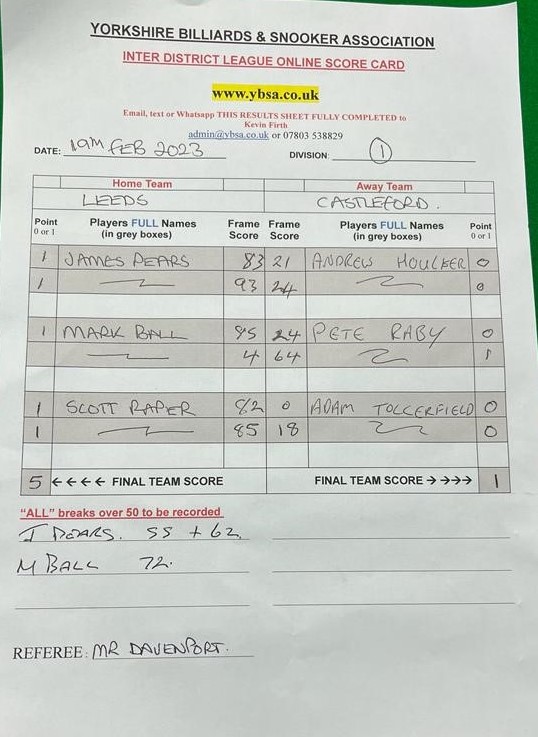 YORKSHIRE BILLIARDS & SNOOKER ASSOCIATION
INTER DISTRICT LEAGUE ONLINE SCORE CARD
www.ybsa.co.uk
Email, text or Whatsapp THIS RESULTS SHEET FULLY COMPLETED to
Kevin Firth
admin@ybsa.co.uk or 07803 538829
DATE: 19TH FEB 2023 DIVISION: 1
Home Team Away Team
LEEDS CASTLEFORD.
Point 0 or 1 Players FULL Names (in grey boxes) Frame Score Frame Score Players FULL Names (in grey boxes) Point 0 or 1
1 JAMES PEARS 83 21 ANDREW HOULKER 0
1 93 24 0
1 MARK BALL 95 24 PETE RABY 0
4 64 1
1 SCOTT RAPER 82 0 ADAM TOLLERFIELD 0
1 85 18 0
5 ←←←← FINAL TEAM SCORE FINAL TEAM SCORE →→→→ 1
"ALL" breaks over 50 to be recorded
J PEARS. 55 + 62
M BALL 72.
REFEREE: MR DAVENPORT.